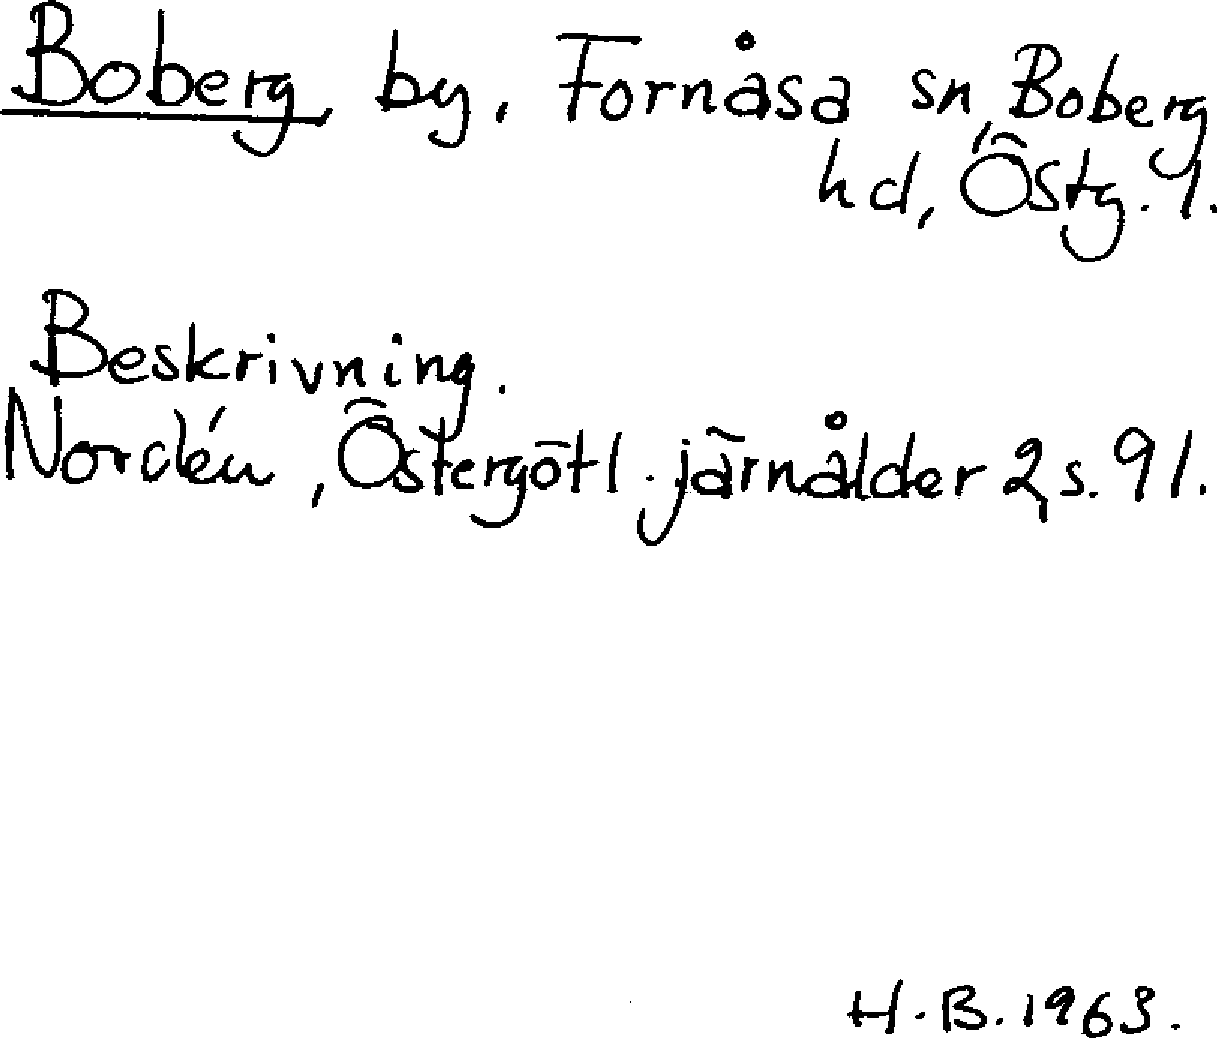 Boberg, by, Fornåsa sn, Boberg
hd, Östg. l.
Beskrivning.
Nordén, Östergötl. järnålder 2, s. 91.
H.B. 1963.